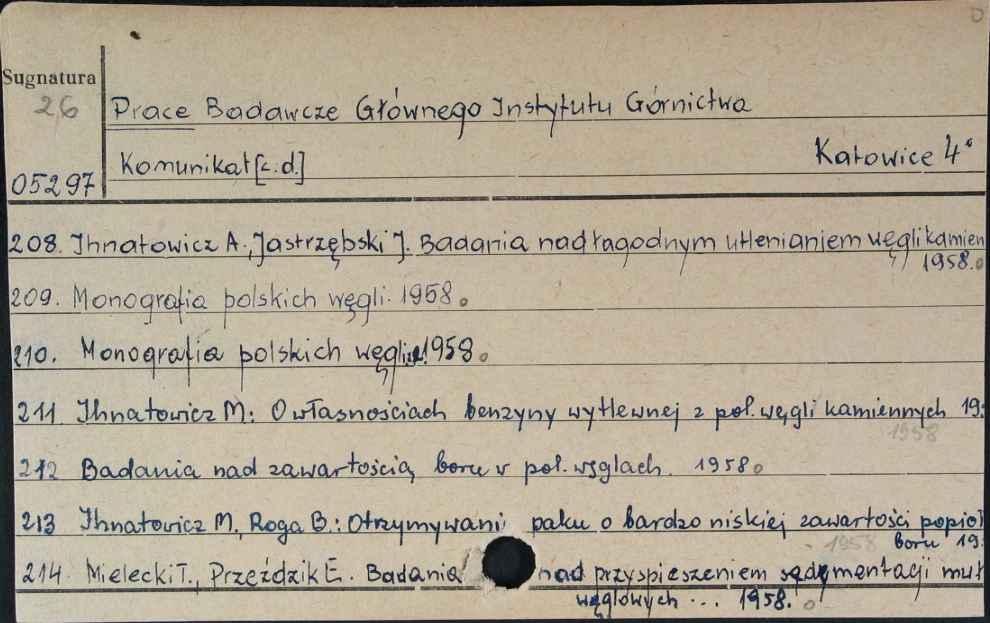 Sygnatura
26
Prace Badawcze Głównego Instytutu Górnictwa
Komunikat [c.d.] Katowice 4°
05297
208. Ihnatowicz A., Jastrzębski J. Badania nad łagodnym utlenianiem węgli kamien
1958.
209. Monografia polskich węgli. 1958.
210. Monografia polskich węgli. 1958.
211. Ihnatowicz M.: O własnościach benzyny wytlewnej z pol. węgli kamiennych 19
1958
212 Badania nad zawartością boru w pol. węglach. 1958
213 Ihnatowicz M., Roga B.: Otrzymywani paku o bardzo niskiej zawartości popioł
1958 boru 19
214. Mielecki T., Przeździk E. Badania nad przyspieszeniem sedymentacji muł
węglowych ... 1958.